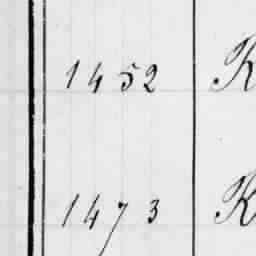 1452 K
1473 K